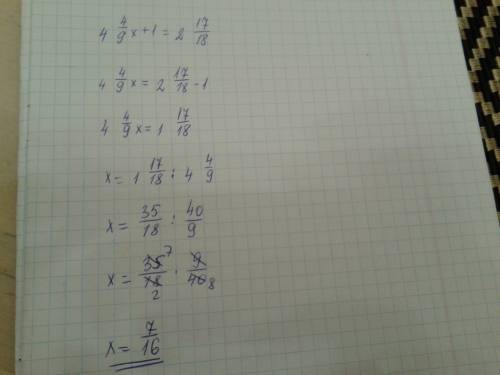 4 4/9 x + 1 = 2 17/18
4 4/9 x = 2 17/18 - 1
4 4/9 x = 1 17/18
x = 1 17/18 : 4 4/9
x = 35/18 : 40/9
x = 35 7/18 2 : 9/40 8
x = 7/16